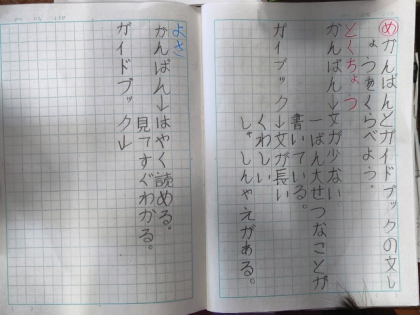 めかんばんとガイドブックの文し
ょうをくらべよう。
とくちょう
かんばん→文が少ない
一ばん大せつなことが
書いている。
ガイブック→文が長い
くわしい
しゃしんやえがある。
よさ
かんばん→はやく読める。
見てすぐわかる。
ガイドブック→